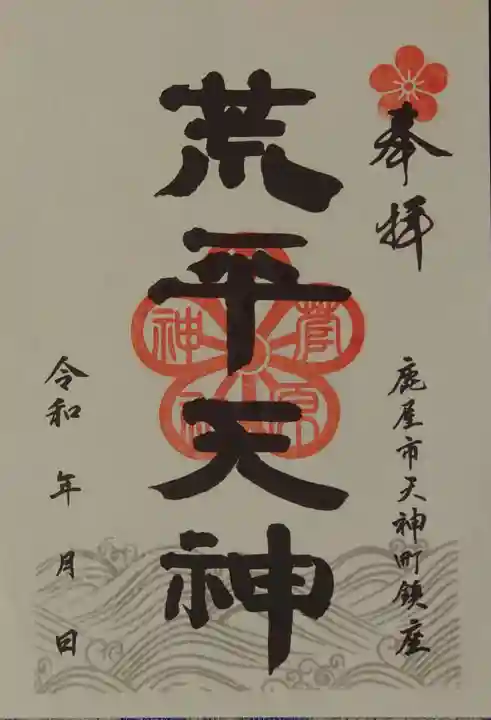 奉拝
鹿屋市天神町鎮座
荒平天神
菅原神社
令和 年 月 日